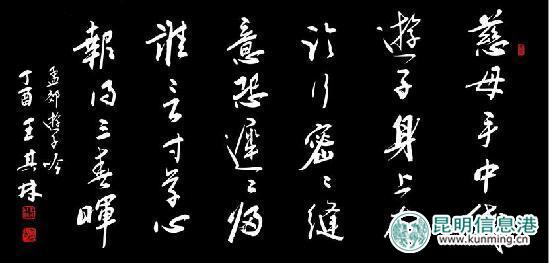 慈母手中线
遊子身上衣
临行密々縫
意恐遲々归
誰言寸草心
報得三春暉
孟郊遊子吟
丁酉王其林
昆明信息港
www.kunming.cn